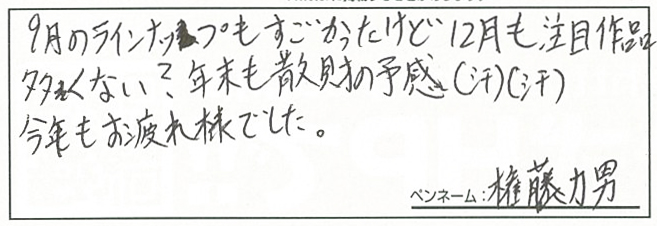 9月のラインナップもすごかったけど12月も注目作品
多くない？年末も散財の予感(汗)(汗)
今年もお疲れ様でした。
ペンネーム：権藤力男